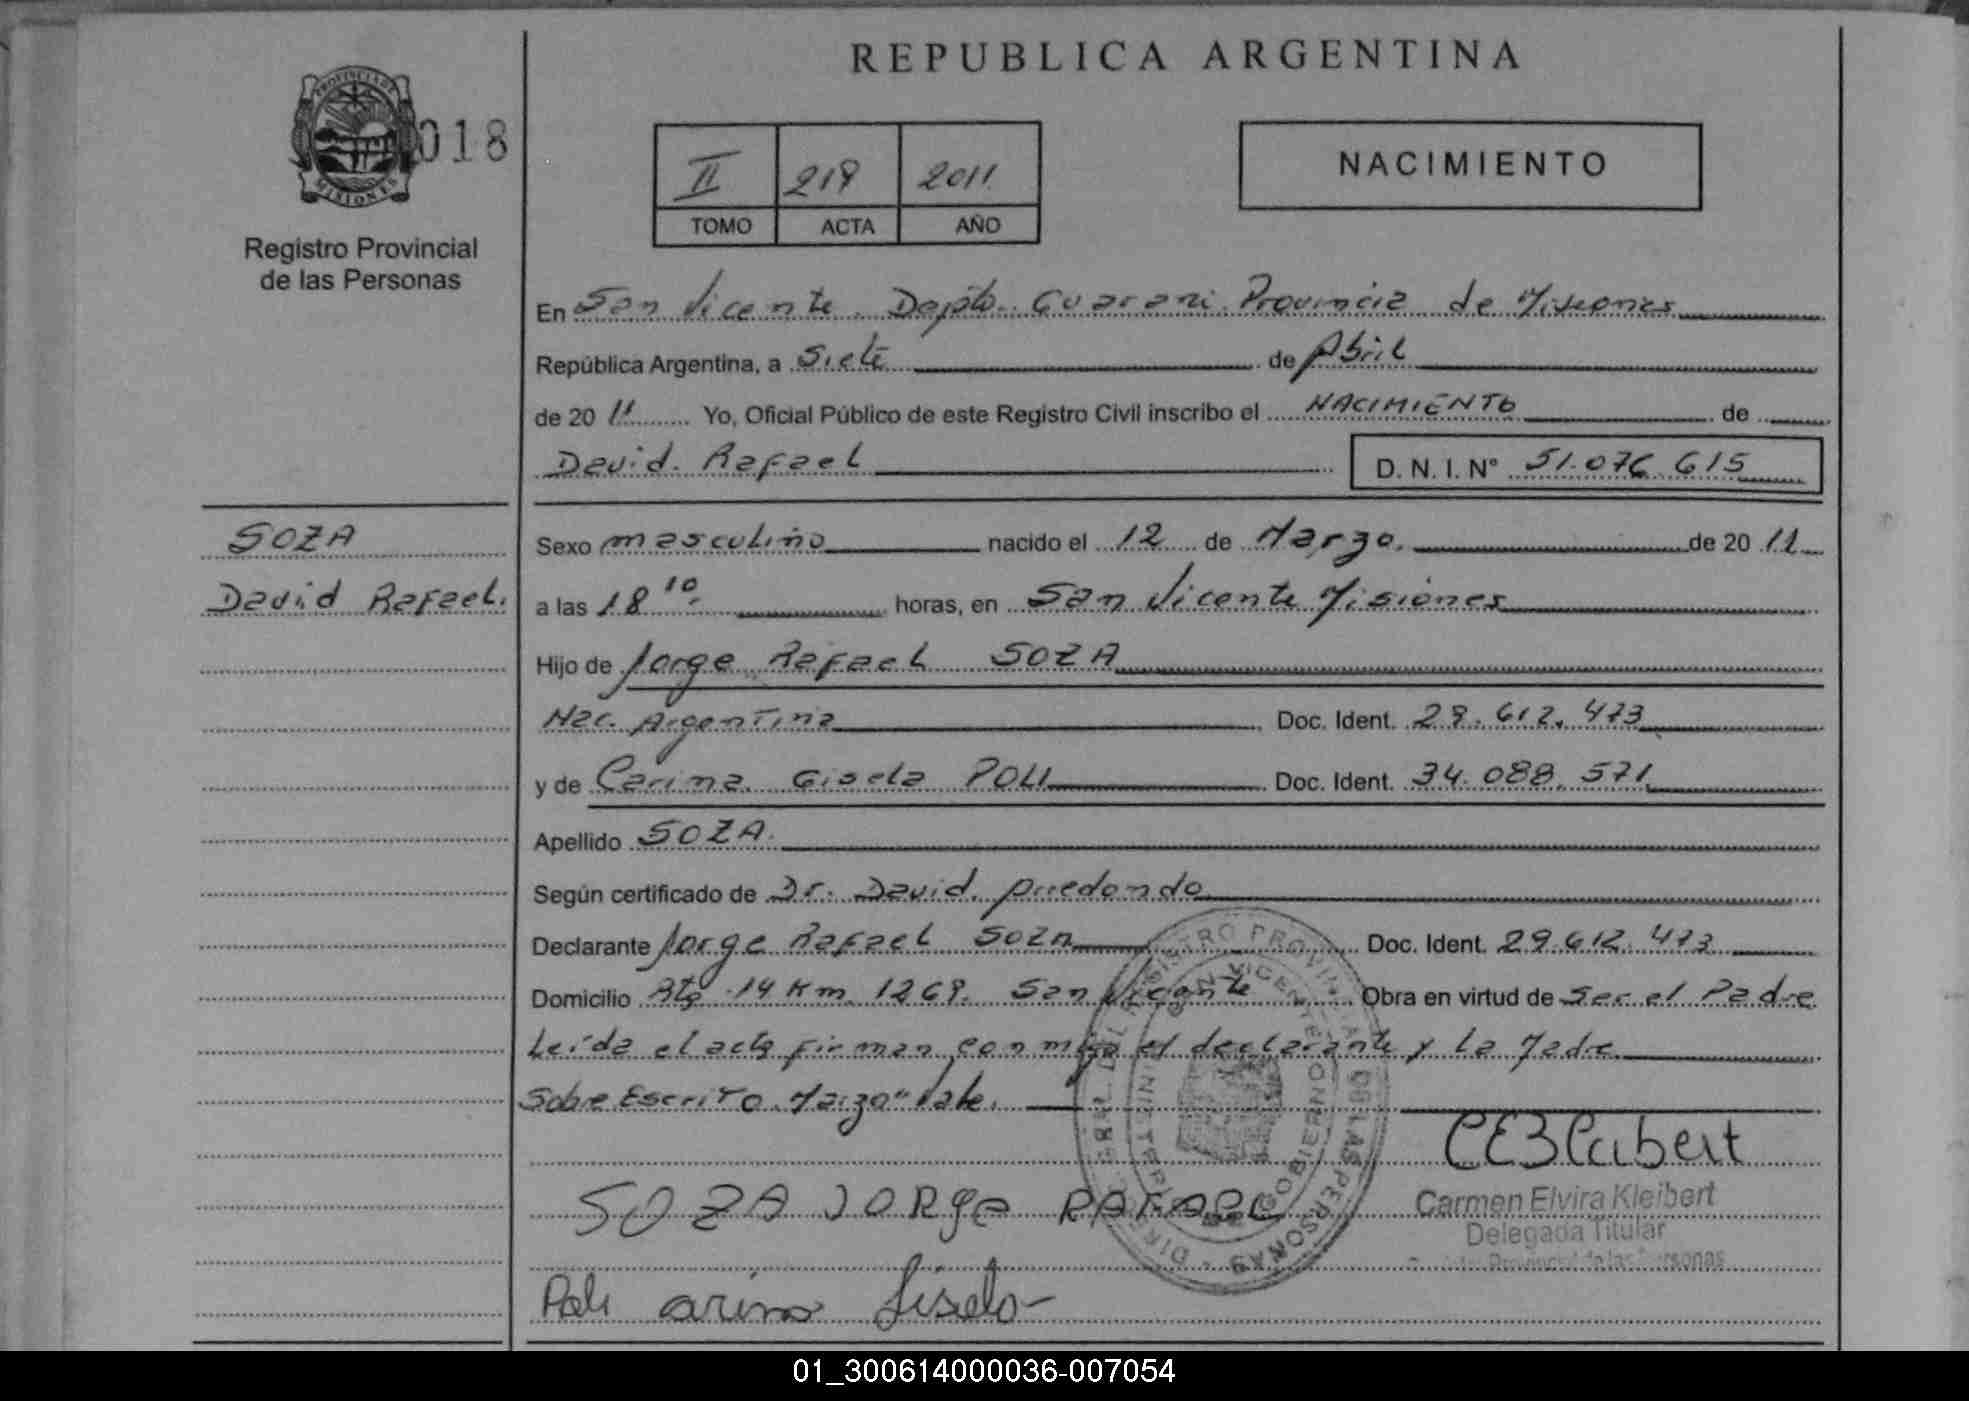 REPUBLICA ARGENTINA
PROVINCIA DE
MISIONES
018
Registro Provincial
de las Personas
II 219 2011
TOMO ACTA AÑO
NACIMIENTO
En San Vicente. Dapto. Guarani. Provincia de Misiones
República Argentina, a Siete de Abril
de 20 11 Yo, Oficial Público de este Registro Civil inscribo el NACIMIENTO de
David. Rafael D. N. I. N° 51.076.615
SOZA
David Rafael.
Sexo masculino nacido el 12 de Marzo. de 20 11
a las 18 10. horas, en San Vicente Misiones
Hijo de Jorge Rafael SOZA
Nac. Argentina Doc. Ident. 29.612.473
y de Carina Gisela POLI Doc. Ident. 34.088.571
Apellido SOZA.
Según certificado de Dr. David. Arredondo
Declarante Jorge Rafael Soza Doc. Ident. 29.612.473
Domicilio Rta 14 Km 1269. San Vicente Obra en virtud de Ser el Padre
Leída el acta firman conmigo el declarante y La Madre
Sobre Escrito "Marzo" Vale.
SAN VICENTE
MINISTERIO DE GOBIERNO
Carmen Elvira Kleibert
Delegada Titular
Provincial de las Personas
SOZA JORge RAFAEL
Poli arina Gisela
01_300614000036-007054